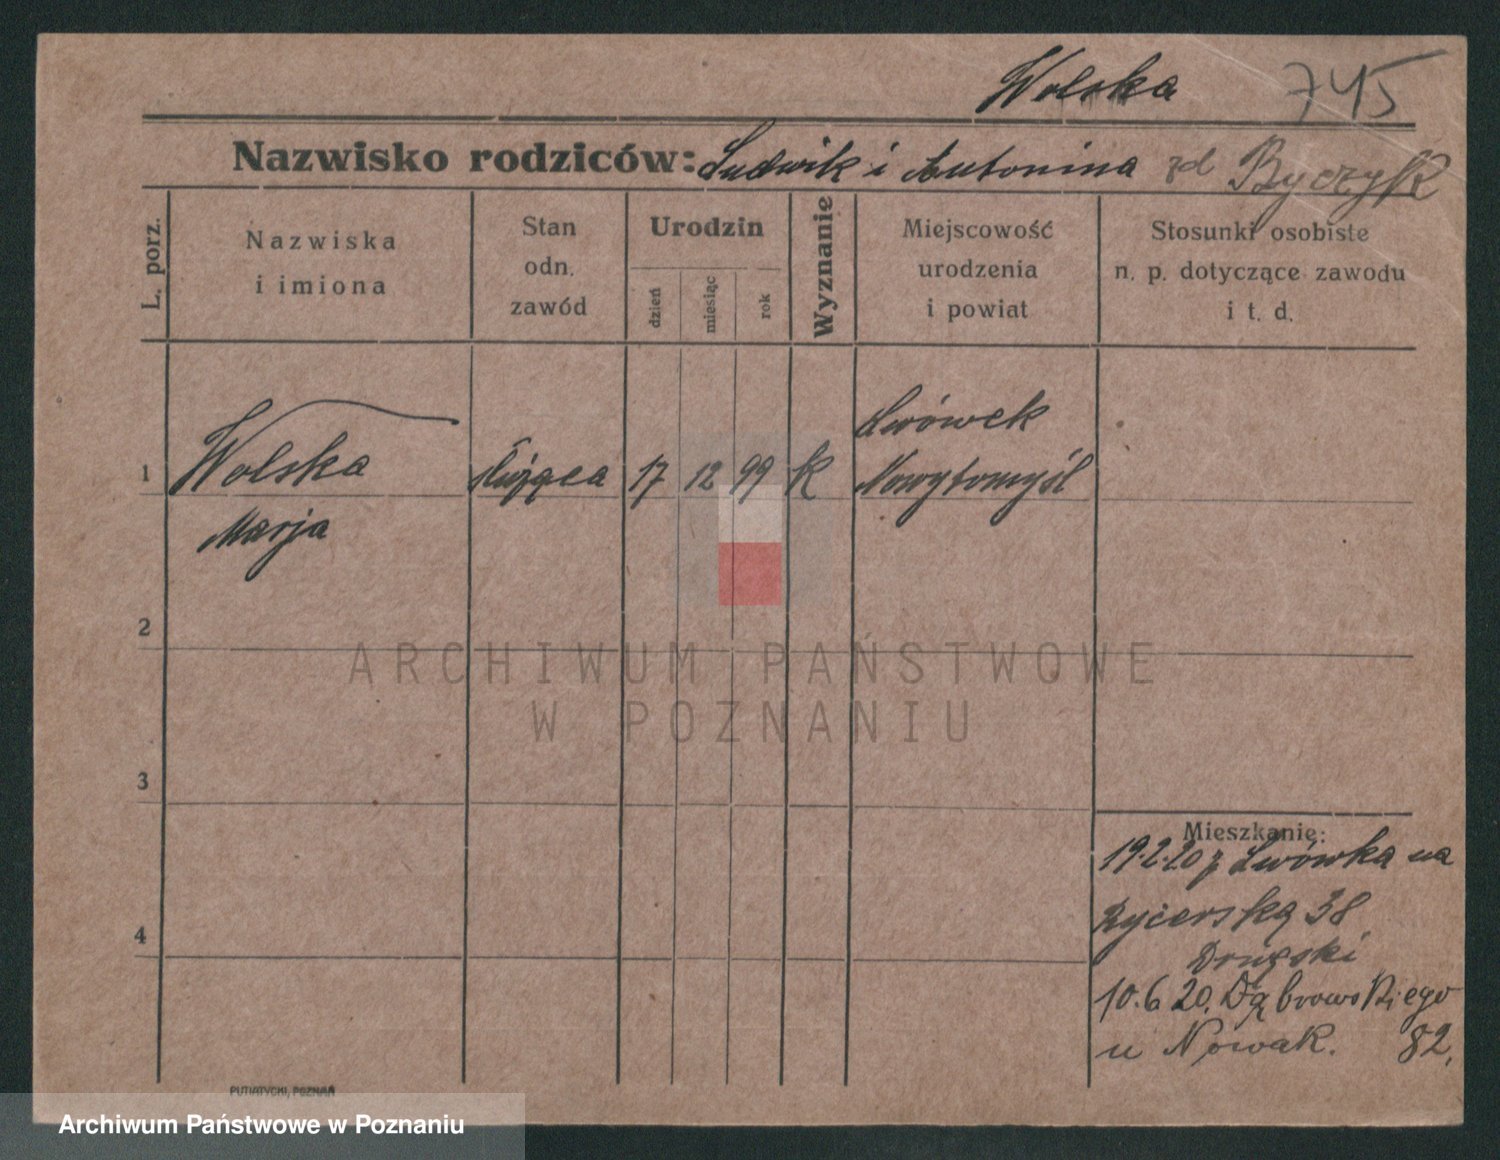 Wolska 745
Nazwisko rodziców: Ludwik i Antonina zd Byczyk
L. porz.
Nazwiska
i imiona
Stan
odn.
zawód
Urodzin
dzień
miesiąc
rok
Wyznanie
Miejscowość
urodzenia
i powiat
Stosunki osobiste
n. p. dotyczące zawodu
i t. d.
Lwówek
1 Wolska służąca 17 12 99 K Nowytomyśl
Marja
2
ARCHIWUM PAŃSTWOWE
W POZNANIU
3
Mieszkanie:
19.2.20 z Lwówka na
Rycerską 38
4
10.6 20. Dąbrowskiego
u Nowak. 82.
PUTIATYCKI, POZNAŃ
Archiwum Państwowe w Poznaniu